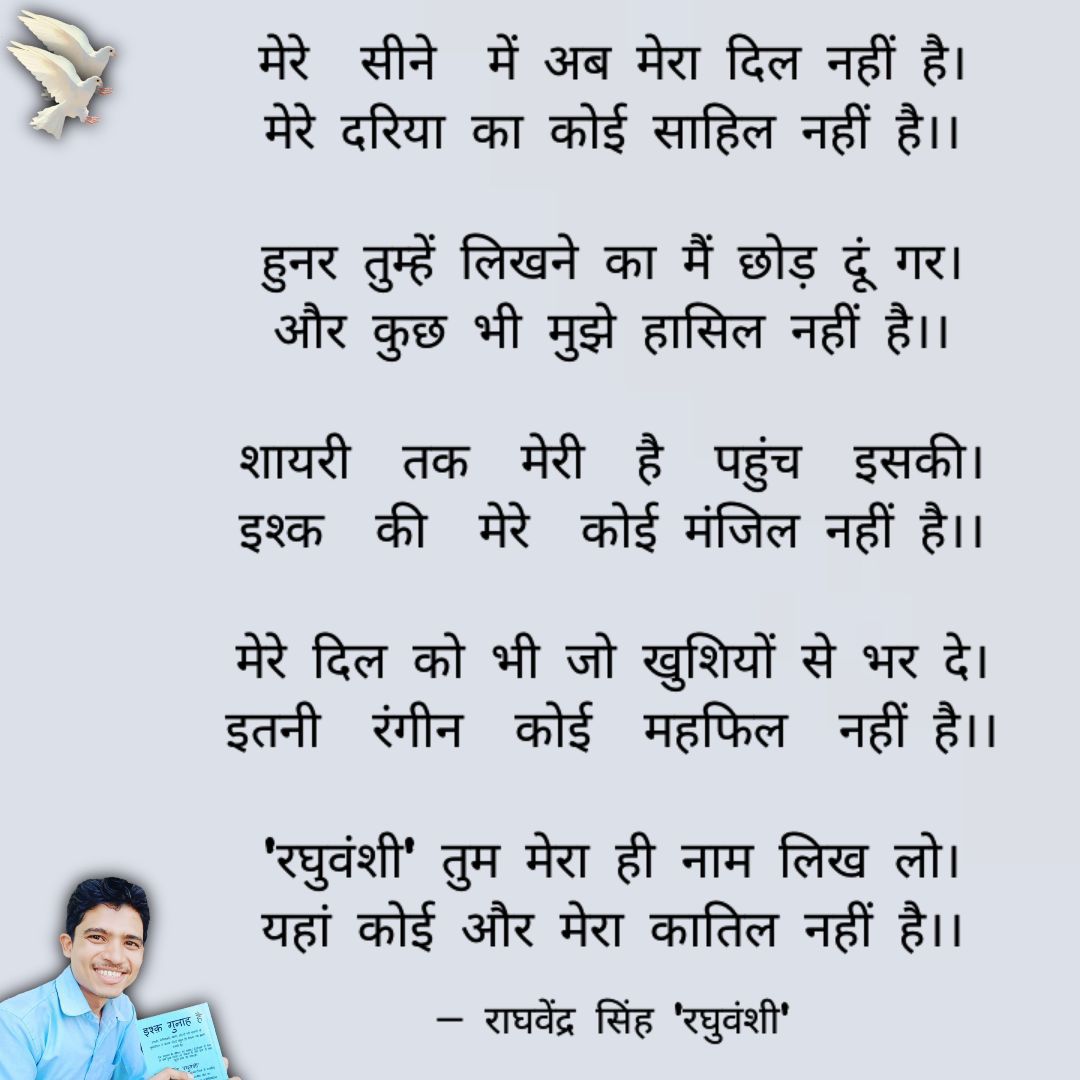 मेरे सीने में अब मेरा दिल नहीं है।
मेरे दरिया का कोई साहिल नहीं है।।
हुनर तुम्हें लिखने का मैं छोड़ दूं गर।
और कुछ भी मुझे हासिल नहीं है।।
शायरी तक मेरी है पहुंच इसकी।
इश्क की मेरे कोई मंजिल नहीं है।।
मेरे दिल को भी जो खुशियों से भर दे।
इतनी रंगीन कोई महफिल नहीं है।।
'रघुवंशी' तुम मेरा ही नाम लिख लो।
यहां कोई और मेरा कातिल नहीं है।।
– राघवेंद्र सिंह 'रघुवंशी'
इश्क़ गुनाह है